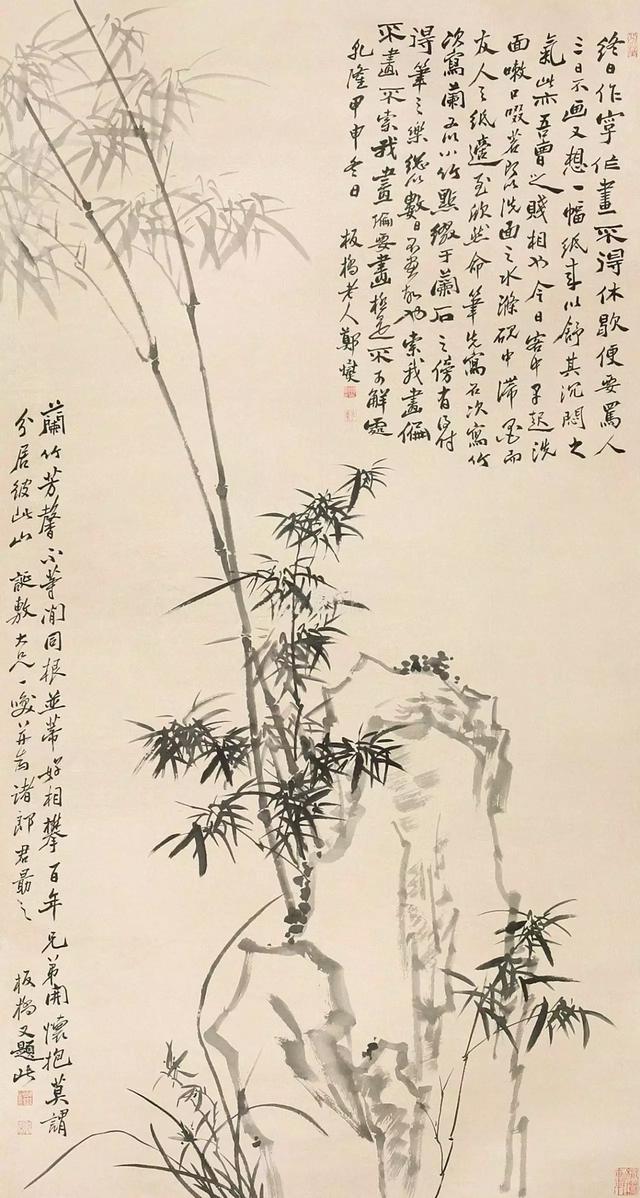 終日作字作畫不得休歇便要罵人
三日不画又想一幅紙來以舒其沉悶之
氣此亦吾曹之賤相也今日客中早起洗
面嗽口啜茗即以洗面之水滌硯中滯墨而
友人之紙適至欣然命筆先寫石次寫竹
次寫蘭又以小竹點綴于蘭石之傍有
得筆之樂總以數日不畫故也索我畫偏
不畫不索我畫偏要畫極是不可解處
乾隆甲申冬日 板橋老人鄭燮
蘭竹芳馨不等閒同根並蒂好相攀百年兄弟開懷抱莫謂
分居彼此山 誕敷大兄一噱并為諸郎君勖之 板橋又題此